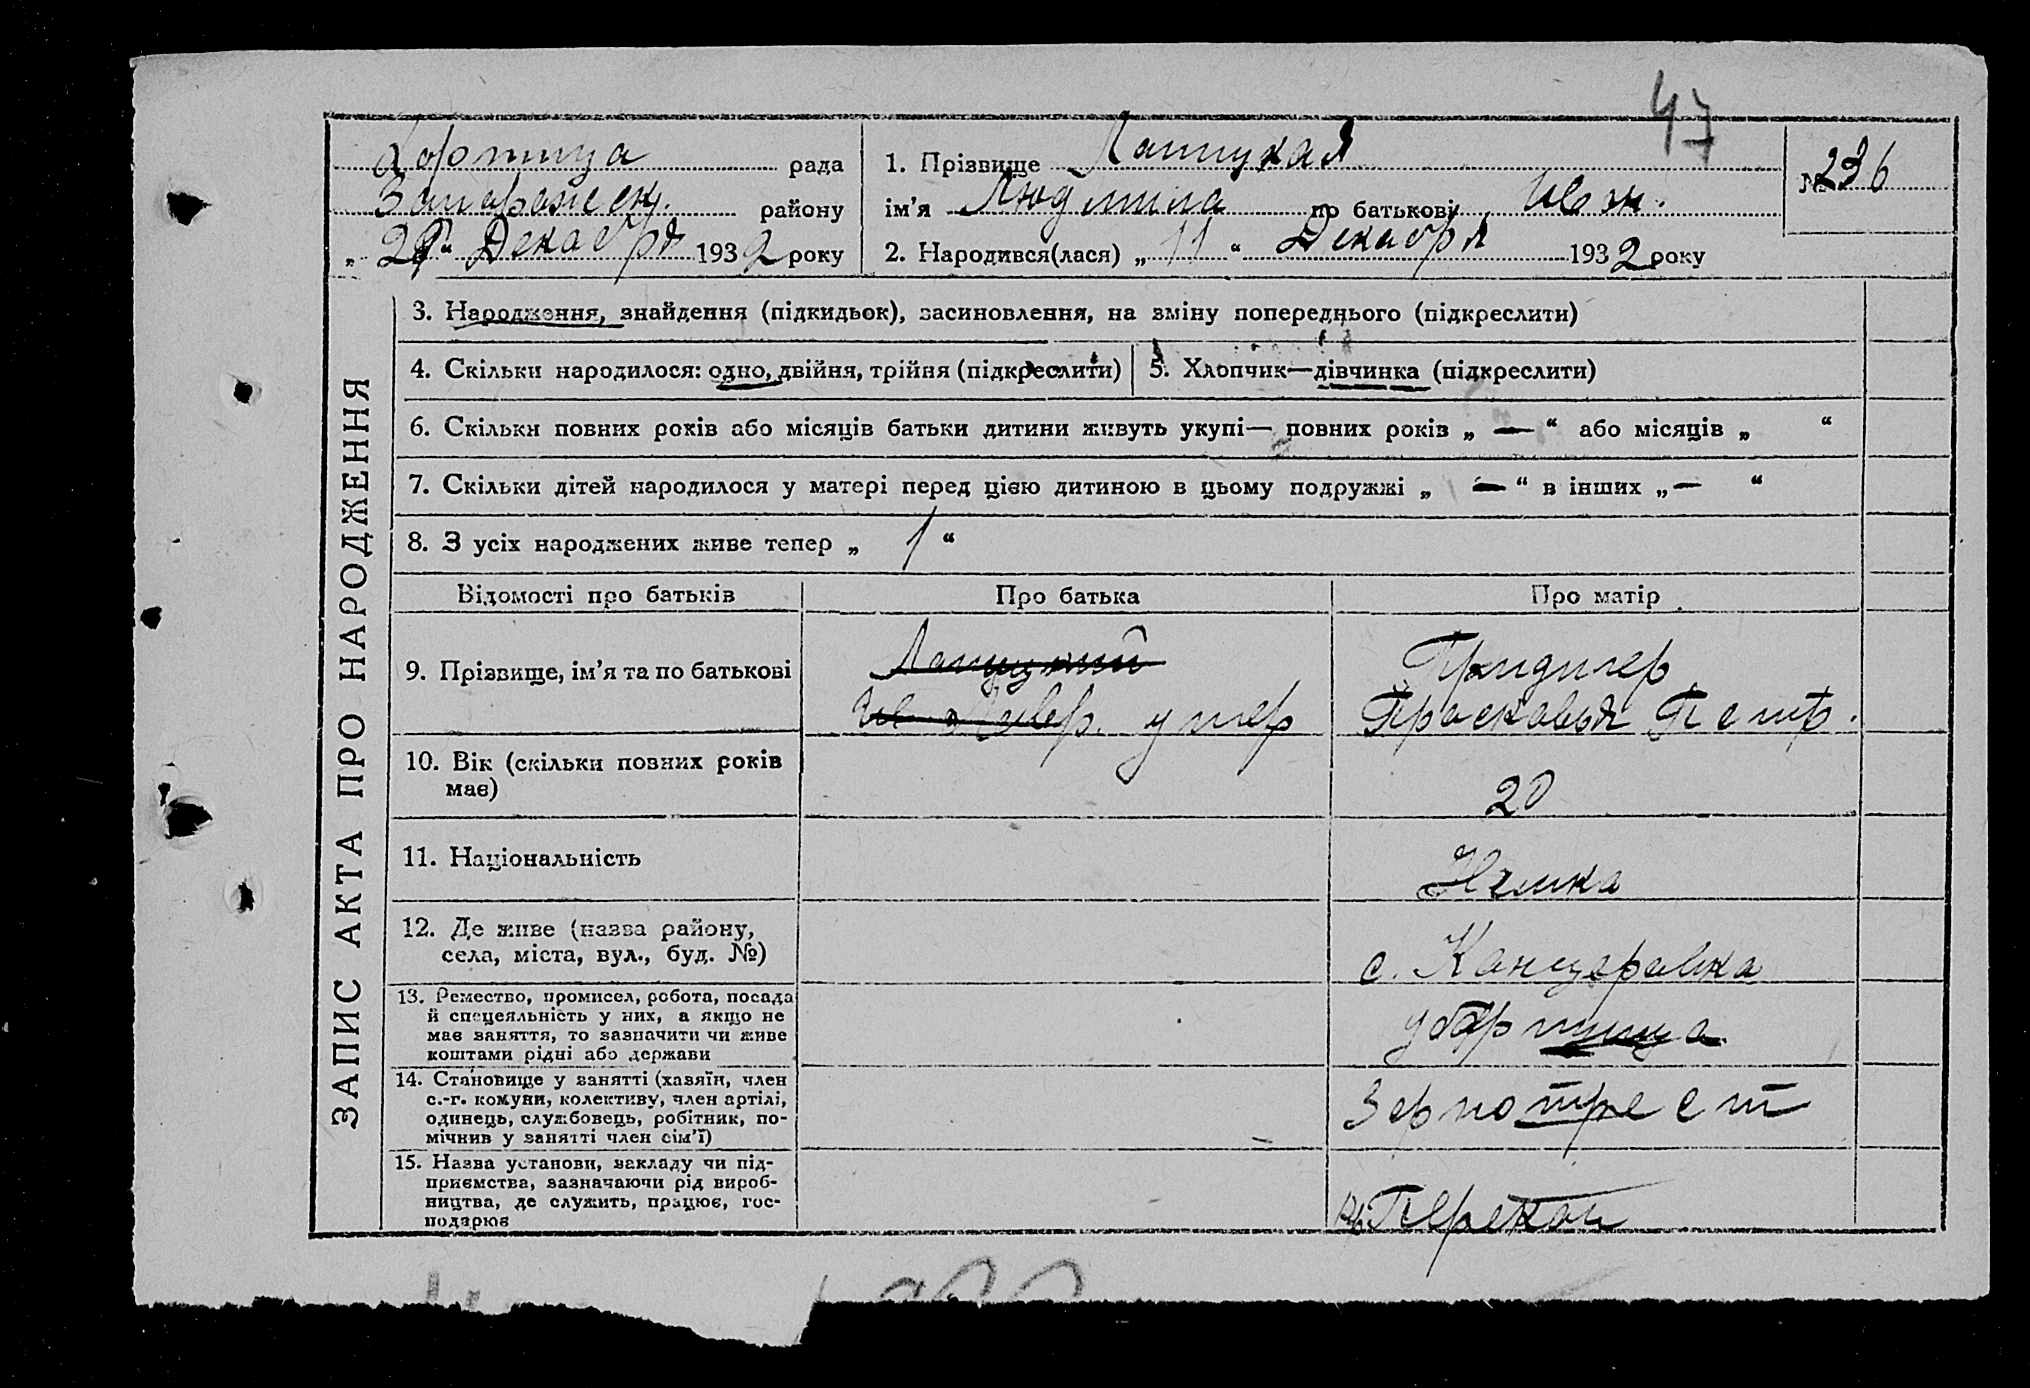 47
Хортица рада
Запорожск. району
„ 29 “ Декабря 1932 року
1. Прізвище Лаппукая
ім’я Людмила по батькові Ив ж.
2. Народився(лася) „ 11 “ Декабря 1932 року
№ 236
ЗАПИС АКТА ПРО НАРОДЖЕННЯ
3. Народження, знайдення (підкидьок), засиновлення, на зміну попереднього (підкреслити)
4. Скільки народилося: одно, двійня, трійня (підкреслити)
5. Хлопчик—дівчинка (підкреслити)
6. Скільки повних років або місяців батьки дитини живуть укупі— повних років „ — “ або місяців „ “
7. Скільки дітей народилося у матері перед цією дитиною в цьому подружжі „ — “ в інших „ — “
8. З усіх народжених живе тепер „ 1 “
Відомості про батьків
Про батька
Про матір
9. Прізвище, ім’я та по батькові
умер
Придигер
Прасковья Петр.
10. Вік (скільки повних років
має)
20
11. Національність
Немка
12. Де живе (назва району,
села, міста, вул., буд. №)
с. Канцеровка
13. Ремество, промисел, робота, посада
й спецеяльність у них, а якщо не
має заняття, то зазначити чи живе
коштами рідні або держави
14. Становище у занятті (хазяїн, член
с.-г. комуни, колективу, член артілі,
одинець, службовець, робітник, по-
мічнив у занятті член сім’ї)
Зернотрест
15. Назва установи, закладу чи під-
приємства, зазначаючи рід вироб-
ництва, де служить, працює, гос-
подарює
Перекоп